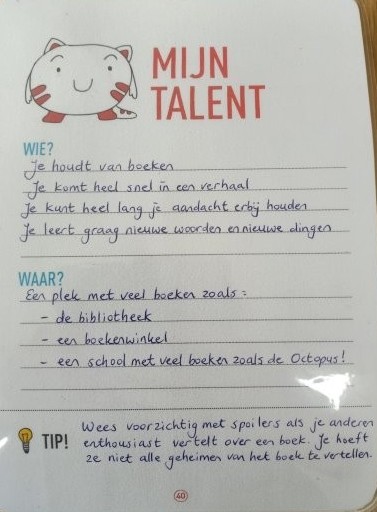 MIJN
TALENT
WIE?
Je houdt van boeken
Je komt heel snel in een verhaal
Je kunt heel lang je aandacht erbij houden
Je leert graag nieuwe woorden en nieuwe dingen
WAAR?
Een plek met veel boeken zoals:
- de bibliotheek
- een boekenwinkel
- een school met veel boeken zoals de Octopus!
Wees voorzichtig met spoilers als je anderen
TIP! enthousiast vertelt over een boek. Je hoeft
ze niet alle geheimen van het boek te vertellen.
40